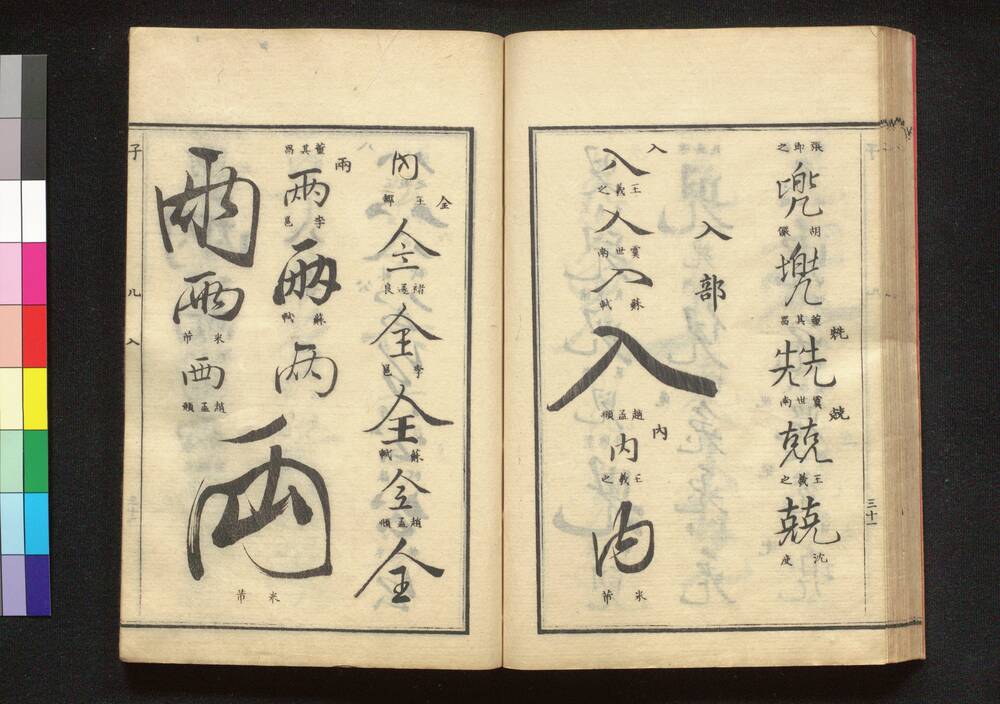 張即之
兜
胡儼
兜
董其昌
兟
兟
虞世南
兢
兢
王羲之
兢
沈度
三十一
入部
入
入
王羲之
入
虞世南
入
蘇軾
入
趙孟頫
內
內
王羲之
內
米芾
內
全
全
褚遂良
全
李邕
全
蘇軾
全
趙孟頫
全
董其昌
兩
兩
李邕
兩
蘇軾
兩
兩
兩
米芾
兩
趙孟頫
兩
米芾
子
儿
入